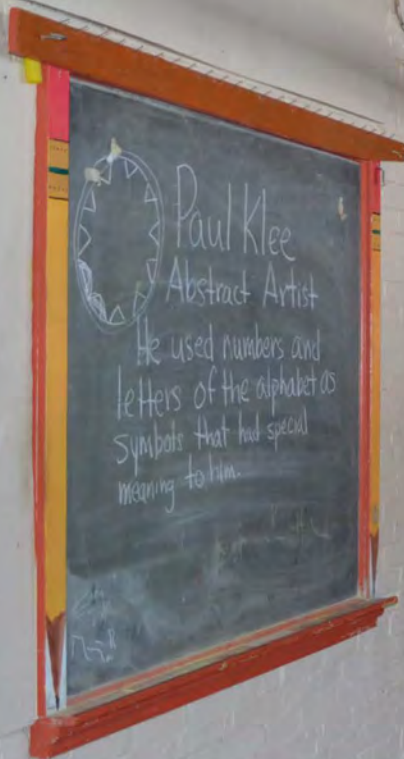 Paul Klee
Abstract Artist
He used numbers and
letters of the alphabet as
symbols that had special
meaning to him.